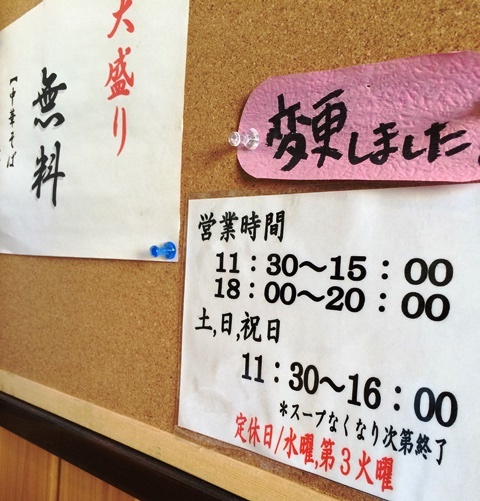 大盛り
無料
【中華そば
変更しました。
営業時間
11:30〜15:00
18:00〜20:00
土,日,祝日
11:30〜16:00
*スープなくなり次第終了
定休日/水曜,第3火曜